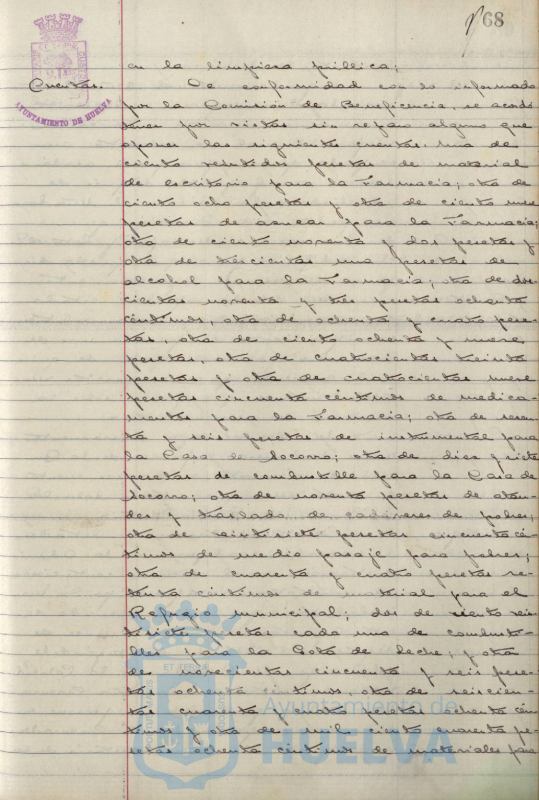 68
en la limpieza pública;
Cuentas. De conformidad con lo informado
por la Comisión de Beneficencia se acordó
tener por vistas sin reparo alguno que
oponer las siguientes cuentas: una de
ciento veintidos pesetas de material
de escritorio para la Farmacia; otra de
ciento ocho pesetas y otra de ciento nueve
pesetas de azucar para la Farmacia;
otra de ciento noventa y dos pesetas y
otra de trescientas una pesetas de
alcohol para la Farmacia; otra de dos-
cientas noventa y tres pesetas ochenta
céntimos, otra de ochenta y cuatro pese-
tas, otra de ciento ochenta y nueve
pesetas, otra de cuatrocientas treinta
pesetas y otra de cuatrocientas nueve
pesetas cincuenta céntimos de medica-
mentos para la Farmacia; otra de sesen-
ta y seis pesetas de instrumental para
la Casa de Socorro; otra de diez y siete
pesetas de combustible para la Casa de
Socorro; otra de noventa pesetas de ataú-
des y traslado de cadáveres de pobres;
otra de veintisiete pesetas cincuenta cén-
timos de medio pasaje para pobres;
otra de cuarenta y cuatro pesetas se-
tenta céntimos de material para el
Refugio municipal; dos de ciento vein-
tisiete pesetas cada una de combusti-
bles para la Gota de Leche; y otra
de novecientas cincuenta y seis pese-
tas ochenta céntimos, otra de seiscien-
tas cuarenta y cuatro pesetas ochenta cén-
timos y otra de mil ciento cuarenta pe-
setas ochenta céntimos de materiales para
AYUNTAMIENTO DE HUELVA
Ayuntamiento de
HUELVA